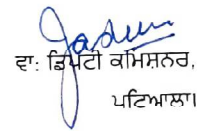 ਵਾ: ਡਿਪਟੀ ਕਮਿਸ਼ਨਰ,
ਪਟਿਆਲਾ।